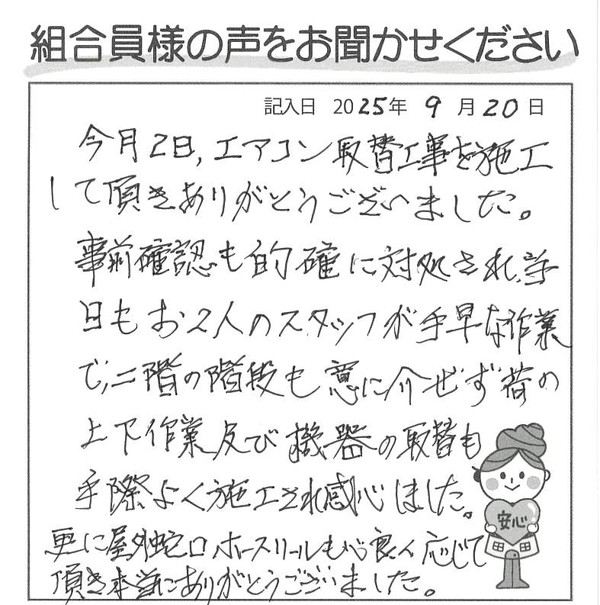 組合員様の声をお聞かせください
記入日 2025年 9月20日
今月2日,エアコン取替工事を施工
して頂きありがとうございました。
事前確認も的確に対処され,当
日もお2人のスタッフが手早な作業
で,二階の階段も意に介せず荷の
上下作業及び機器の取替も
手際よく施工され感心しました。
更に屋外蛇口,ホースリールも心良く応じて
頂き本当にありがとうございました。
安心